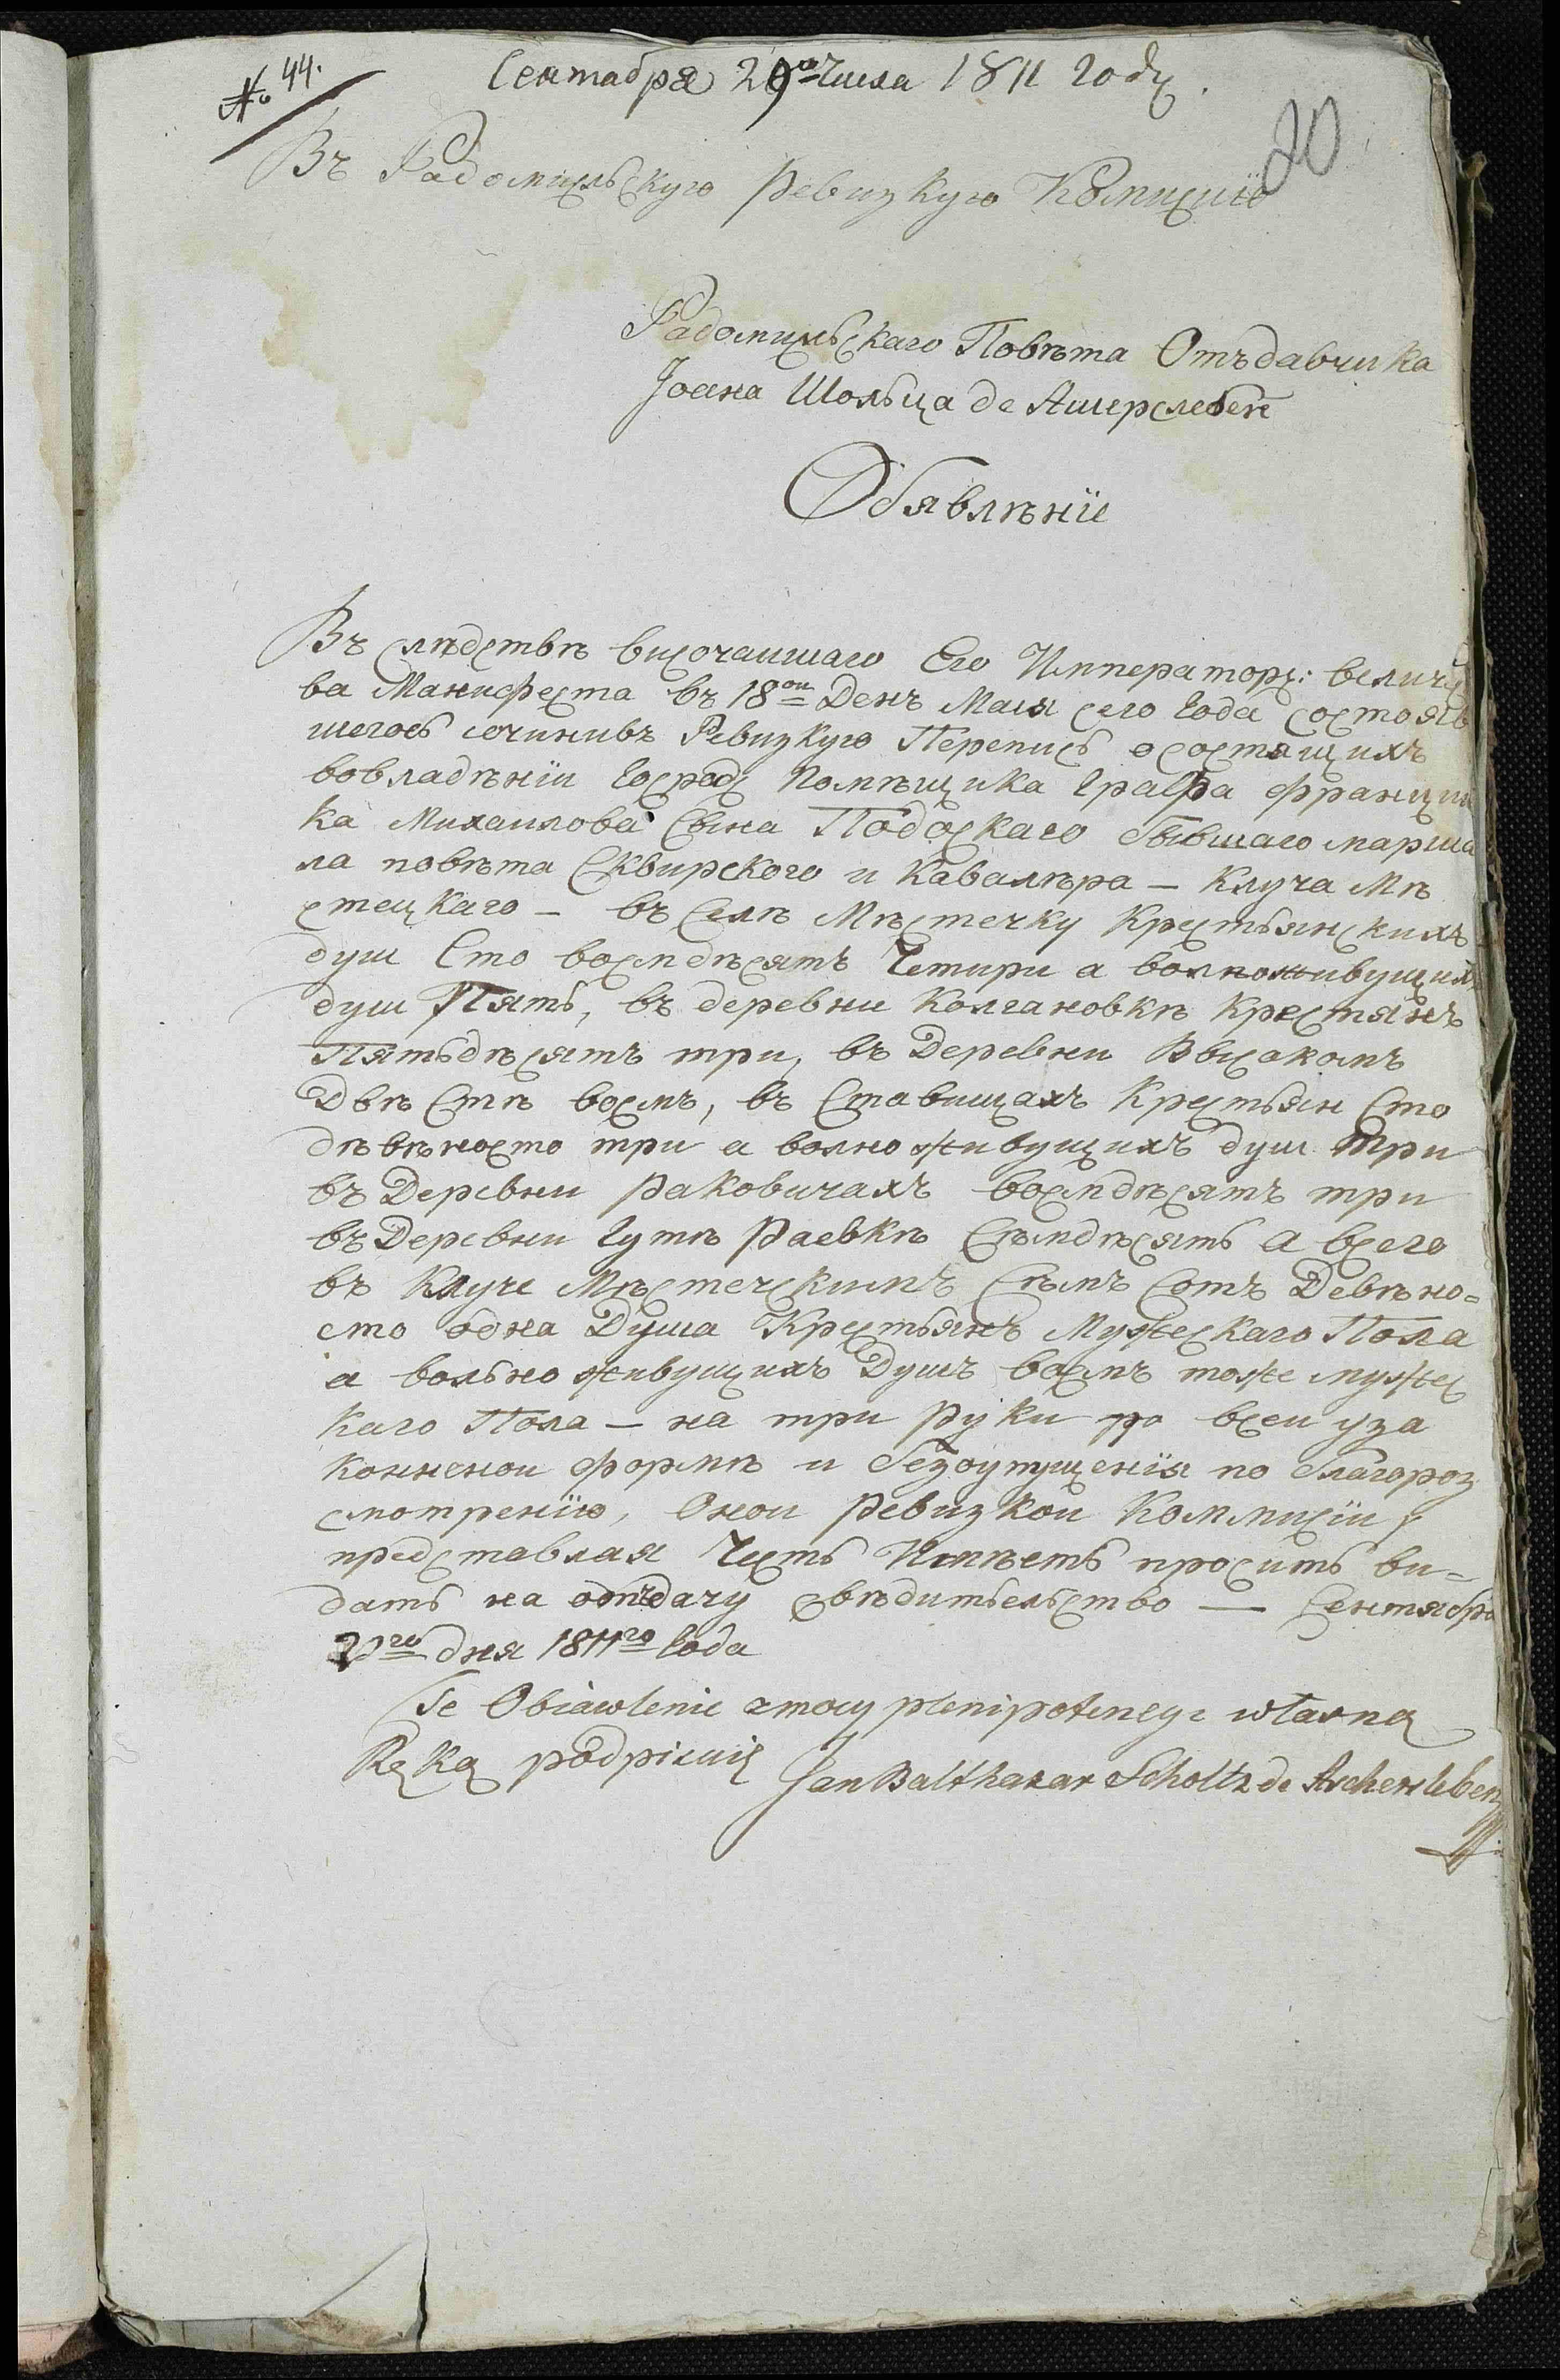 № 44.
Сентабря 29го Числа 1811 году.
20
Въ Радомисльскую Ревизкую Комисию
Радомисльскаго Повѣта Отъдавчика
Іоана Шольца де Ашерслебен
Обявлѣніе
Въ слѣдствѣ височаишаго Его Императорс: величес
ва Манифеста въ 18ои Денъ Мая сего Года состояв
шегось сочинивъ Ревизкую Перепись осостящихъ
вовладѣніи Госрод Помѣщика Графа Франциш
ка Михаилова Сына Подоскаго бывшаго марша
ла повѣта Сквирского и Кавалѣра – Ключа Мѣ
стецкаго – въ Селѣ Мѣстечку Крестьянскихъ
душ Сто восмдѣсятъ Четири а волноживущихъ
душ Пять, въ деревни Колгановкѣ Крестянъ
Пятьдѣсятъ три, въ Деревни Висакомъ
Двѣ Стѣ восмъ, въ Ставищахъ Крестьян Сто
дѣвѣносто три а волно живущихъ душ три
въ Деревни Раковичахъ восмдѣсятъ три
въ Деревни Гутѣ Раевкѣ Сѣмдѣсятъ а всего
въ Ключе Мѣстечскимъ Сѣмъ Сотъ Девѣно=
сто одна Душа Крестьянъ Мужескаго Пола
а вольно живущихъ Душъ восмъ тоже мужес
каго Пола – на три Руки по всеи уза
конненои формѣ и безоупущенія по благороз
смотренію, Онои Ревизкои Коммисіи
представлая Честь Имѣетъ просить ви=
дать на отъдачу свѣдитьельство — Сентябра
29го дня 1811го Года
Te Obiawlenie z mocy plenipotencyi własną
Ręką podpisuię Jan Balthazar Scholtz de Aschersleben